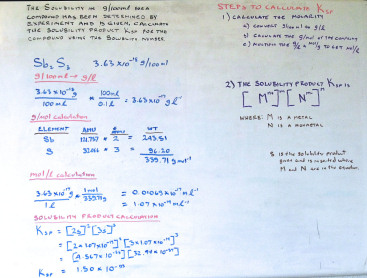 THE SOLUBILITY IN g/100ml OF A
COMPOUND HAS BEEN DETERMINED BY
EXPERIMENT AND IS GIVEN, CALCULATE
THE SOLUBILITY PRODUCT KSP FOR THE
COMPOUND USING THE SOLUBILITY NUMBER
Sb₂ S₃ 3.63 x10⁻¹⁸ g/100ml
g/100ml → g/l
3.63 x10⁻¹⁸ g * 100ml = 3.63 x10⁻¹⁷ g l⁻¹
100 ml 0.1 l
g/mol calculation
ELEMENT AMU WT
Sb 121.757 * 2 = 243.51
S 32.066 * 3 = 96.20
339.71 g mol⁻¹
mol/l calculation
3.63 x10⁻¹⁷ g * 1 mol = 0.0106
1 l 339.71g = 1.07 x10⁻¹⁹ ml⁻¹
SOLUBILITY PRODUCT CALCULATION
KSP = [2S]² [3S]³
= [2 x 1.07 x10⁻¹⁹]² [3 x 1.07 x10⁻¹⁹]³
KSP = 1.50 x 10⁻⁹³
STEPS TO CALCULATE KSP
1) CALCULATE THE MOLARITY
a) CONVERT g/100ml TO g/l
b) CALCULATE THE g/mol OF THE COMPOUND
c) MULTIPLY THE g/l * mol/g TO GET mol/l
2) THE SOLUBILITY PRODUCT KSP IS
[M⁺]ᵐ [N⁻]ⁿ
WHERE: M IS A METAL
N IS A NONMETAL
S is the solubility product
given and is inputed where
M and N are in the equation